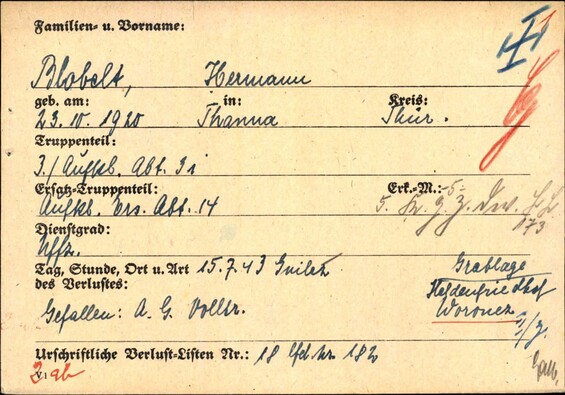 Familien- u. Vorname:
Blobelt, Hermann
geb. am: in: Kreis:
23.10.1920 Thanna Thür.
Truppenteil:
3./Aufkl. Abt. 31
Ersatz-Truppenteil: Erk.-M.: -5-
Aufkl. Ers. Abt. 14 5. Kr. g. Z. Div.
173
Dienstgrad:
Uffz.
Tag, Stunde, Ort u. Art 15.7.43
des Verlustes:
Grablage
Heldenfriedhof
Woronez
Gefallen: A. G. Volltr.
Urschriftliche Verlust-Listen Nr.: 18 lfd Nr 182
V1